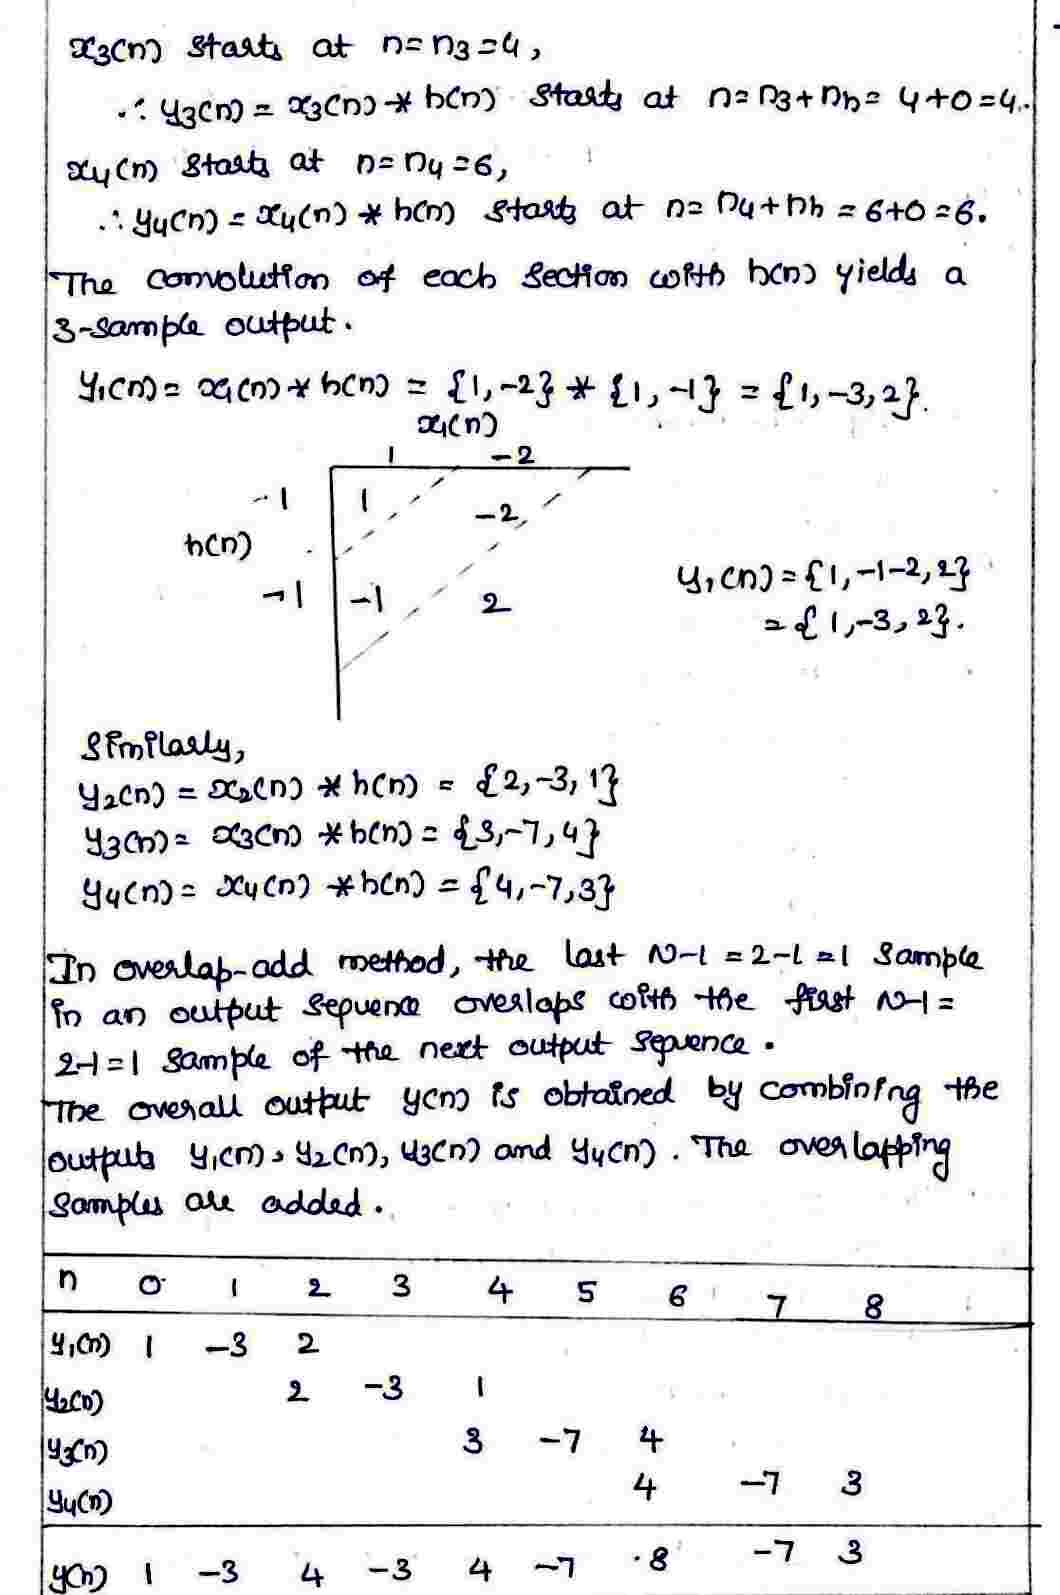 x3(n) starts at n=n3=4,
∴ y3(n) = x3(n) * h(n) starts at n=n3+nh= 4+0=4.
x4(n) starts at n=n4=6,
∴ y4(n) = x4(n) * h(n) starts at n= n4+nh = 6+0=6.
The convolution of each section with h(n) yields a
3-sample output.
y1(n)= x1(n) * h(n) = {1,-2} * {1,-1} = {1,-3,2}.
x1(n)
1 -2
-1 1 -2
h(n)
-1 -1 2
y1(n)={1,-1-2,2}
={1,-3,2}.
Similarly,
y2(n) = x2(n) * h(n) = {2,-3,1}
y3(n)= x3(n) *h(n)= {3,-7,4}
y4(n)= x4(n) *h(n) ={4,-7,3}
In overlap-add method, the last N-1=2-1=1 sample
in an output sequence overlaps with the first N-1=
2-1=1 sample of the next output sequence.
The overall output y(n) is obtained by combining the
outputs y1(n), y2(n), y3(n) and y4(n). The overlapping
samples are added.
n 0 1 2 3 4 5 6 7 8
y1(n) 1 -3 2
y2(n) 2 -3 1
y3(n) 3 -7 4
y4(n) 4 -7 3
y(n) 1 -3 4 -3 4 -7 8 -7 3